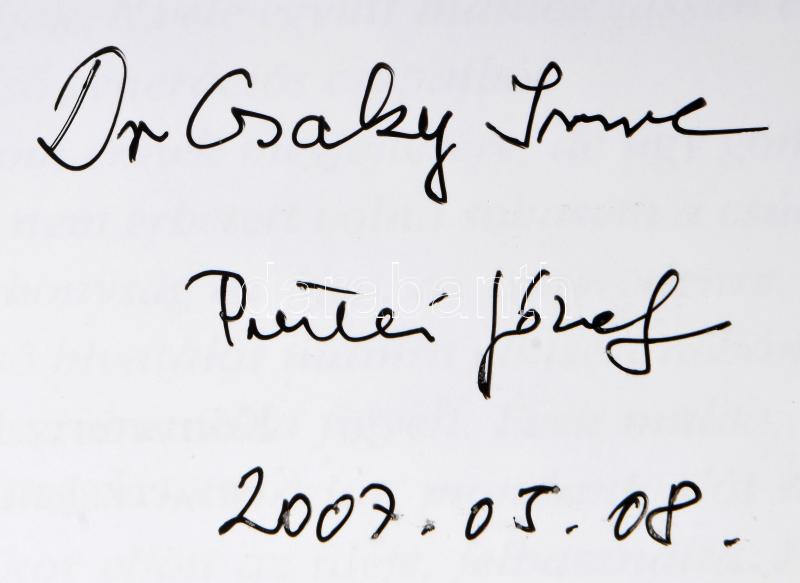 Dr Csaky Imre
darabanth
József
2007.05.08.